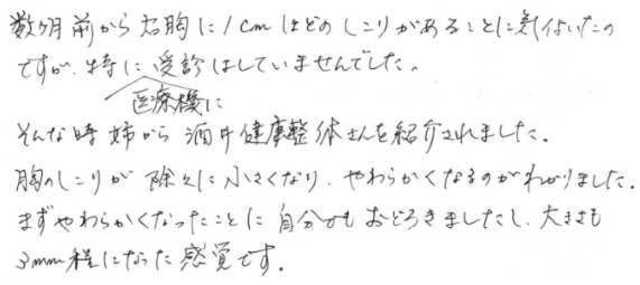 数ヶ月前から右胸に1cmほどのしこりがあることに気付いたの
ですが、特に受診はしていませんでした。
医療機に
そんな時姉から酒井健康整体さんを紹介されました。
胸のしこりが除々に小さくなり、やわらかくなるのがわかりました。
まずやわらかくなったことに自分でもおどろきましたし、大きさも
3mm程になった感覚です。